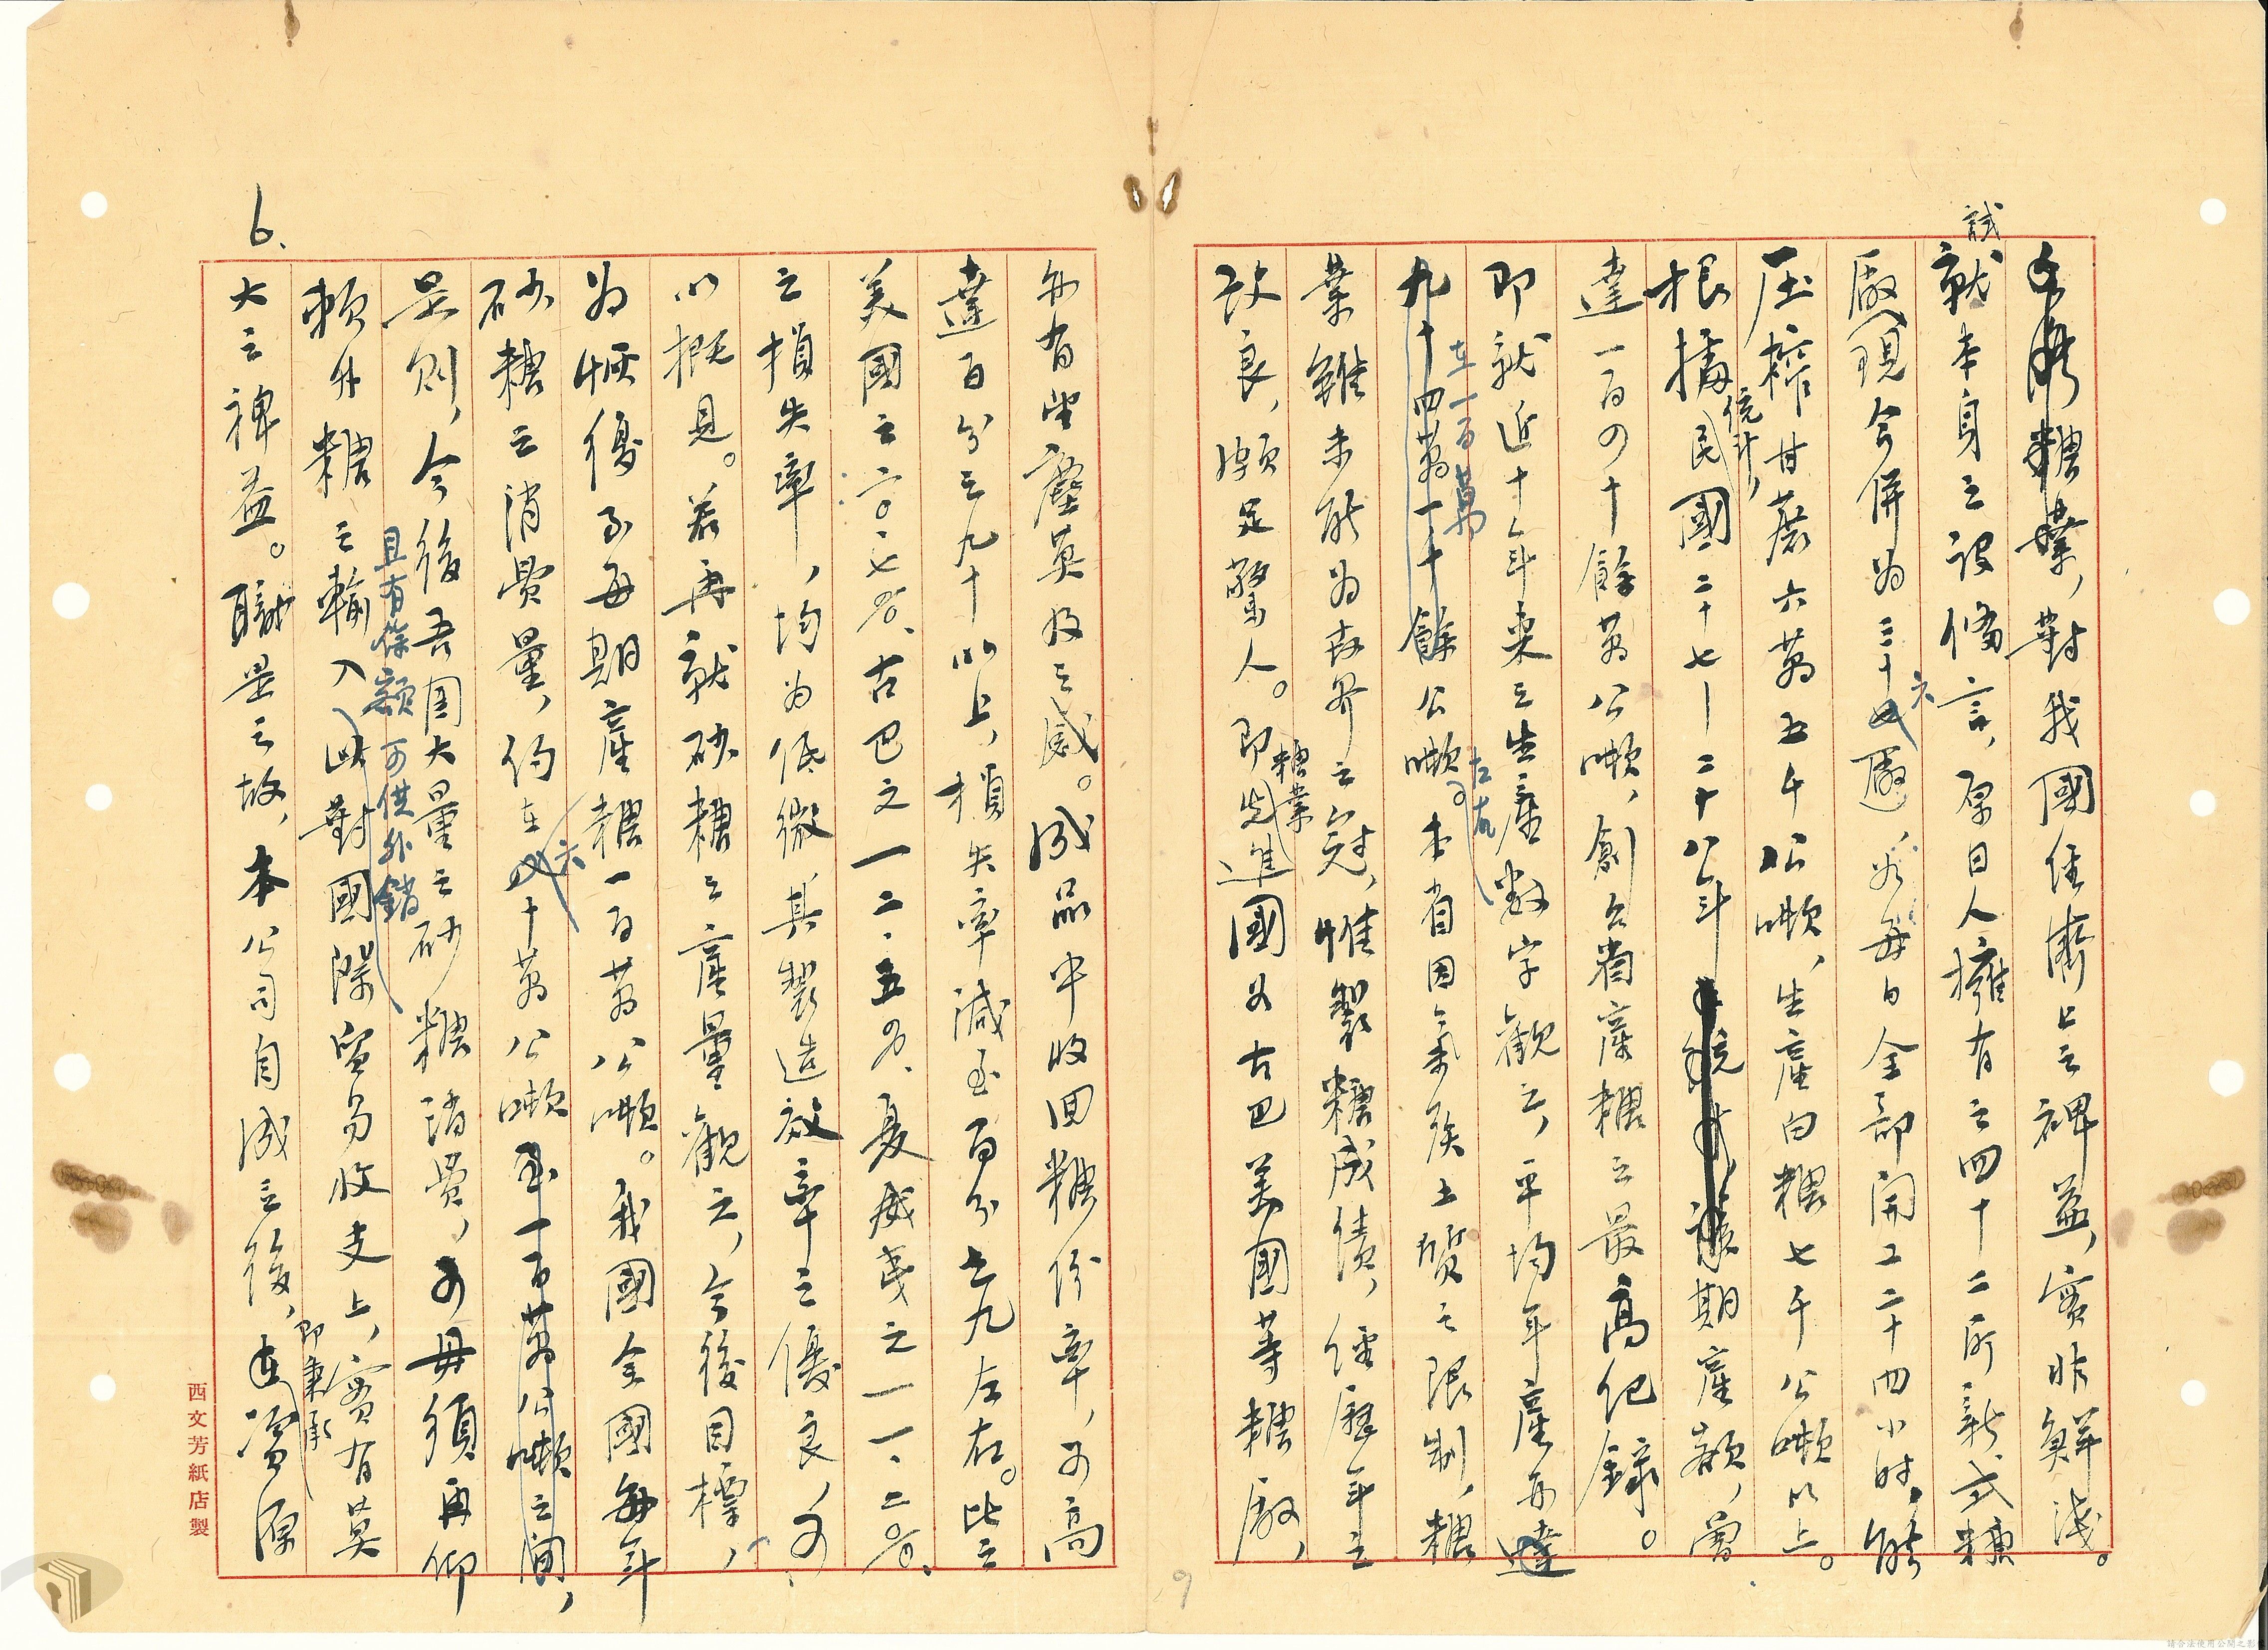 糖業，對我國經濟上之裨益，實非鮮淺。
試
就本身之設備言，原日人擁有之四十二所新式糖
廠，現合併為三十六廠，如每日全部開工二十四小時，能
壓榨甘蔗六萬五千公噸，生產白糖七千公噸以上。
根據統計，民國二十七—二十八年期產額，曾
達一百四十餘萬公噸，創台省產糖之最高紀錄。
即就近十年來之生產數字觀之，平均年產亦達
在一百萬
九十四萬一千餘公噸左右。本省因氣候土質之限制，糖
業雖未能為世界之冠，惟製糖成績，經歷年之
改良，頗足驚人。即糖業先進國如古巴美國等糖廠，
亦有望塵莫及之感。成品中收回糖份率，可高
達百分之九十以上，損失率減至百分之九左右。比之
美國之二〇.七%、古巴之一二.五%、夏威夷之一一.二%、
之損失率，均為低微，其製造效率之優良，可
以概見。若再就砂糖之產量觀之，今後目標，
為恢復至每期產糖一百萬公噸。我國全國每年
砂糖之消費量，約在六十萬公噸至一百萬公噸之間，
是則，今後吾國大量之砂糖消費，可毋須再仰
且有餘額可供外銷
賴外糖之輸入，此對國際貿易收支上，實有莫
大之裨益。職是之故，本公司自成立後，即秉承資源
6.
9
西文芳紙店製